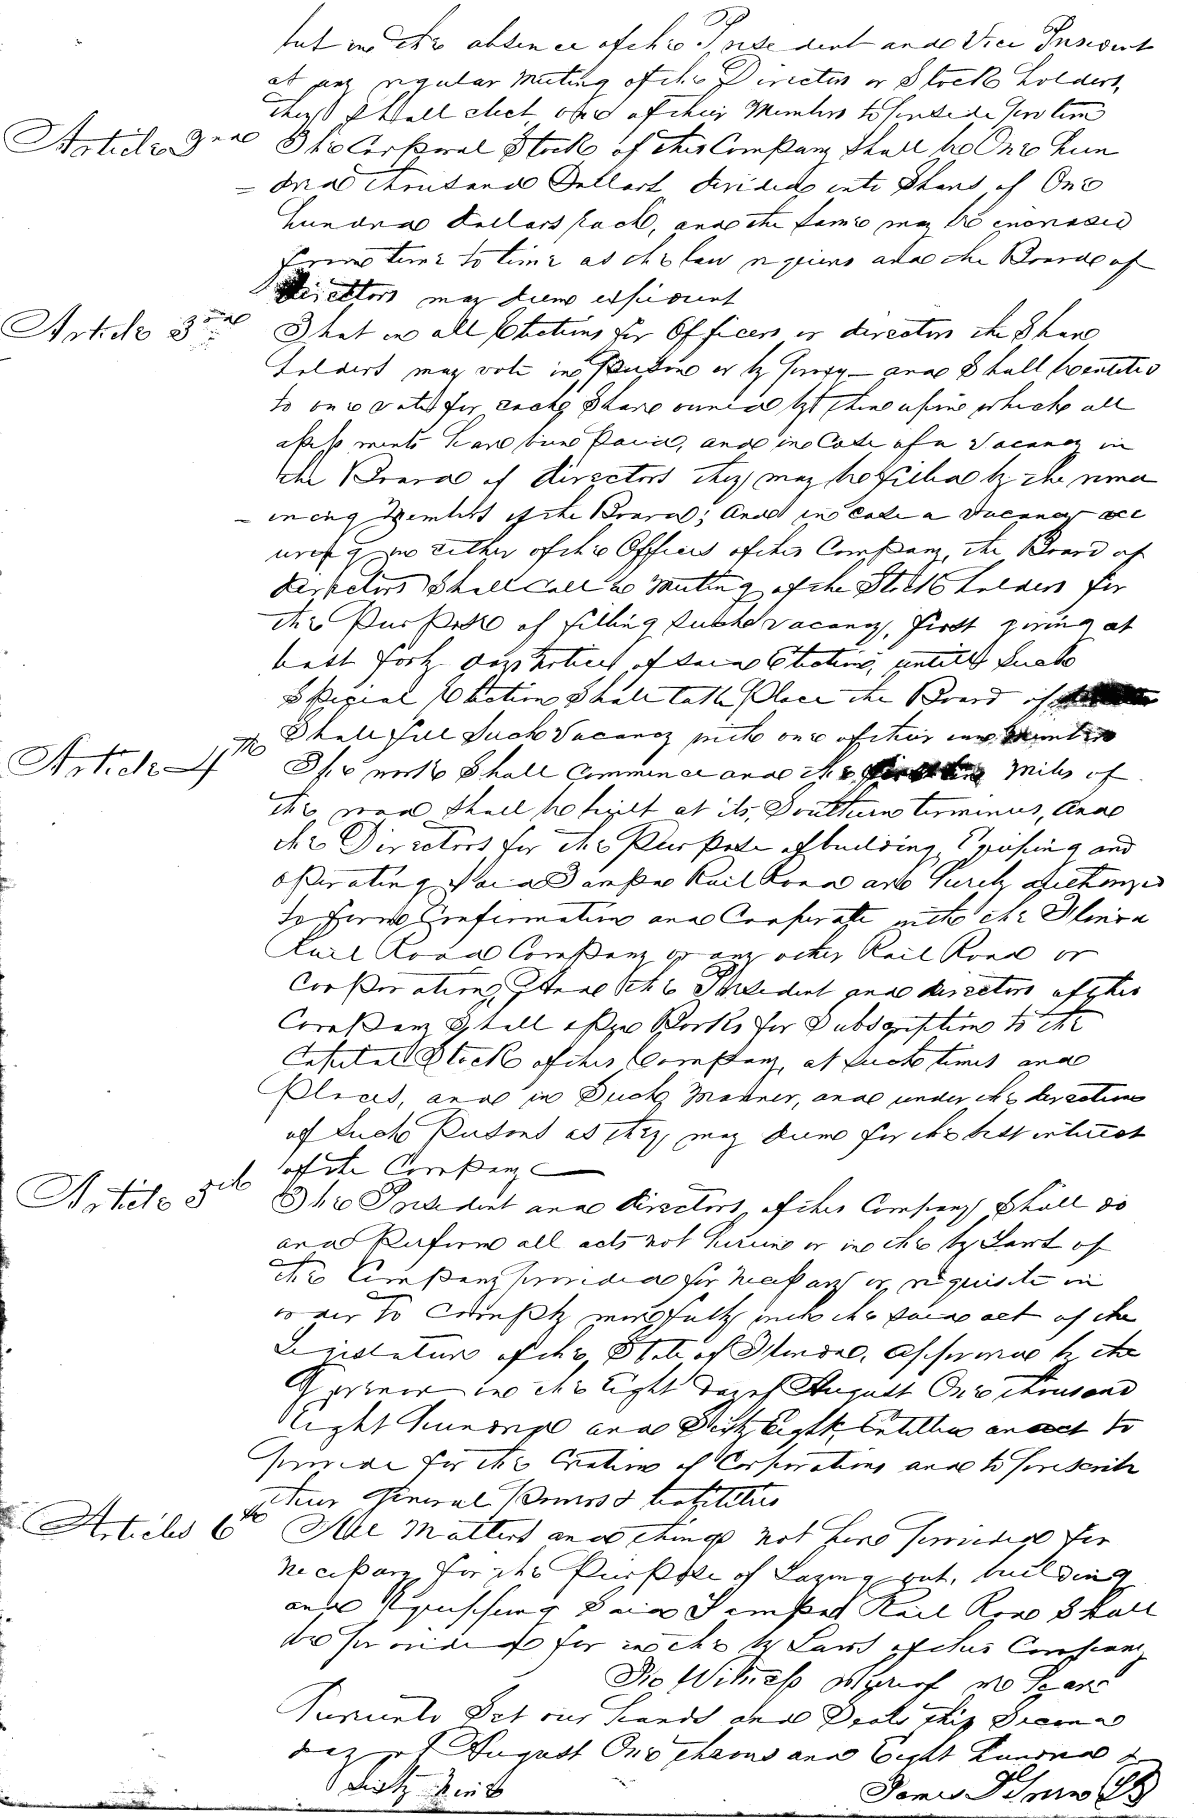 but in the absence of the President and Vice President
at any regular Meeting of the Directors or Stock holders,
they shall elect one of their Members to preside pro tem
Article 2nd The Corporal Stock of this Company Shall be One hun
- dred thousand Dollars, divided into Shares of One
hundred dollars Each, and the same may be increased
from time to time as the law requires and the Board of
directors may deem expedient
Article 3rd That in all Elections for Officers or directors the Share
holders may vote in Person or by proxy – and Shall be entitled
to one vote for each Share owned by them upon which all
assessments have been paid, and in Case of a Vacancy in
the Board of directors they may be filled by the rema
- ining Members of the Board; And in case a Vacancy occ
uring in either of the Offices of this Company, the Board of
directors Shall Call a Meeting of the Stock holders for
the Purpose of filling such vacancy, first giving at
least forty days notice of said Election, untill Such
Special Election Shall take Place the Board of
Shall fill Such Vacancy with one of their own Members
Article 4th The work Shall Commence and the Miles of
the road shall be built at its Southern terminus, and
the Directors for the Purpose of building, Equiping and
operating said Tampa Rail Road are hereby authorized
to form Confirmation and Cooperate with the Florida
Rail Road Company or any other Rail Road or
Corporation, And the President and directors of this
Company Shall open Books for Subscription to the
Capital Stock of this Company, at such times and
Places, and in Such Manner, and under the direction
of Such Persons as they may deem for the best interest
of the Company
Article 5th The President and directors of this Company Shall do
and Perform all acts not herein or in the by Laws of
the Company provided for necessary or requisite in
order to Comply more fully with the said act of the
Legislature of the State of Florida, approved by the
Governor on the Eight day of August One thousand
Eight hundred and Sixty Eight, Entitled an act to
provide for the Creation of Corporations and to prescribe
their General Powers & liabilities
Articles 6th All Matters and things not here provided for
necessary for the Purpose of Laying out, building
and Equipping Said Tampa Rail Road Shall
be provided for in the by Laws of this Company
In Witness whereof we have
hereunto Set our hands and Seals this Second
day of August One thousand Eight hundred &
Sixty Nine James